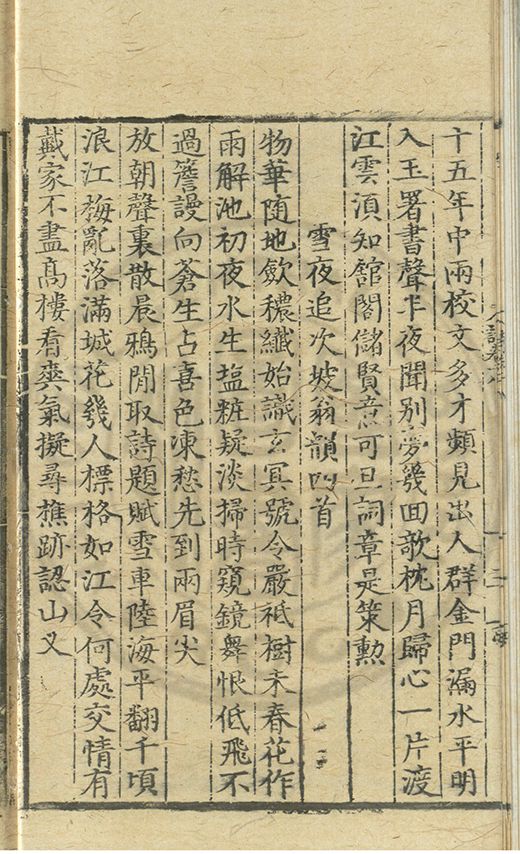 十五年中兩校文多才頻見出人群金門漏水平明
入玉署書聲半夜聞别夢幾回欹枕月歸心一片渡
江雲須知舘閣儲賢意可旦詞章是策勲
雪夜追次坡翁韻四首
物華随地歛穠纖始識玄冥號令嚴祗樹未春花作
雨解池初夜水生塩粧疑淡掃時窺鏡舞恨低飛不
過簷謾向蒼生占喜色凍愁先到兩眉尖
放朝聲裏散晨鴉閒取詩題賦雪車陸海平翻千頃
浪江梅亂落滿城花幾人標格如江令何處交情有
戴家不盡高樓看爽氣擬尋樵跡認山叉